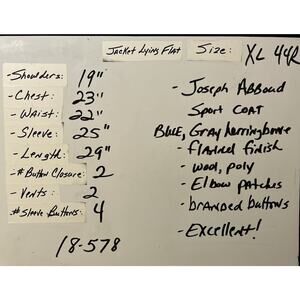 Jacket Lying Flat Size: XL 44R
- Shoulders: 19"
- Chest: 23"
- Waist: 22"
- Sleeve: 25"
- Length: 29"
- # Button Closure: 2
- Vents: 2
# Sleeve Buttons: 4
18-578
- Joseph Abboud
Sport Coat
Blue, Gray herringbone
- flannel finish
- wool, poly
- Elbow patches
- branded buttons
- Excellent!